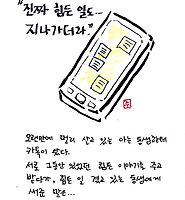 "진짜 힘든 일도...
지나가더라."
오랜만에 멀리 살고 있는 아는 동생한테
카톡이 왔다.
서로 그동안 있었던 힘든 이야기를 주고
받다가, 힘든 일 겪고 있는 동생에게
해준 말은...